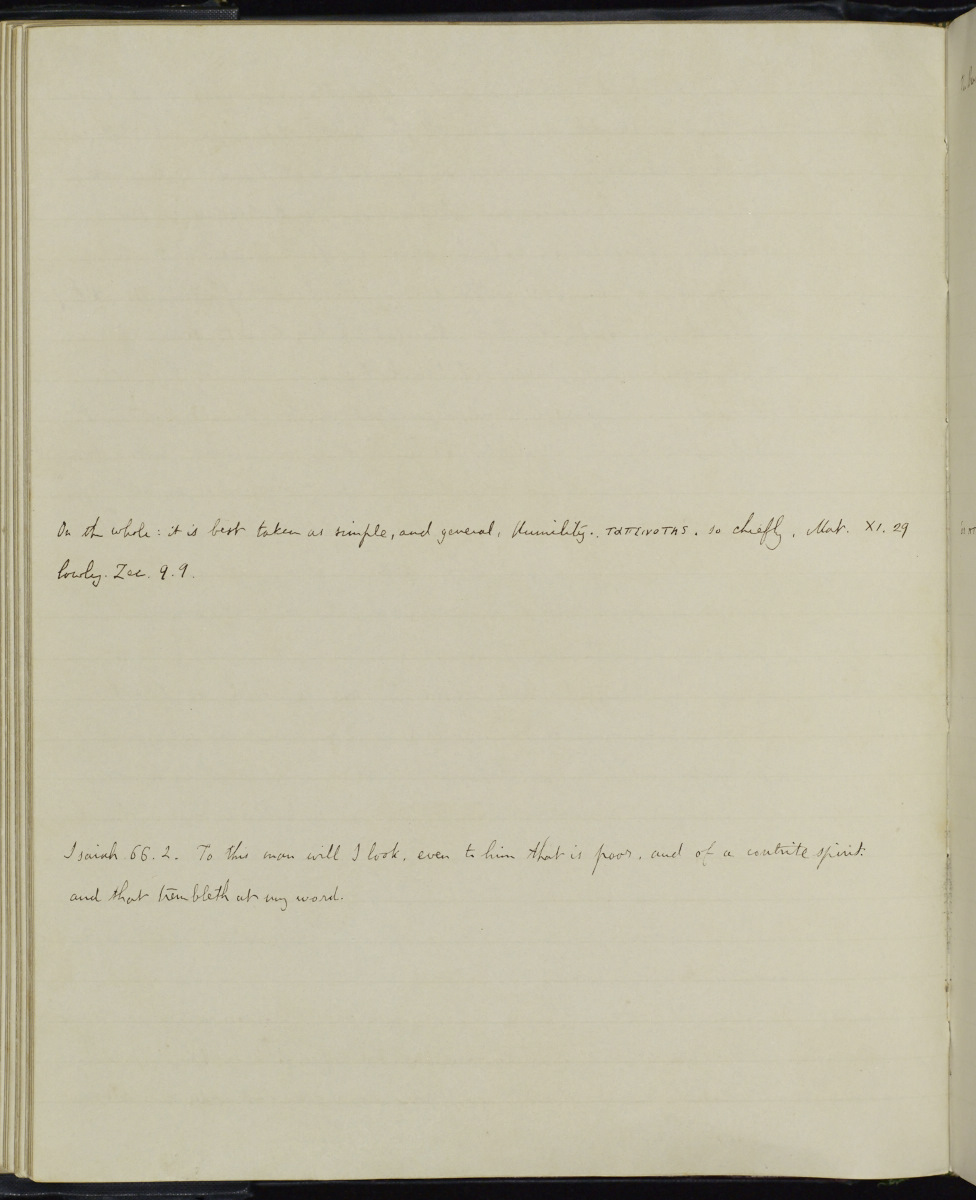 On the whole: it is best taken as simple, and general, Humility. ταπεινοτης. so chiefly. Mat. XI. 29
lowly. Zec. 9. 9.
Isaiah 66. 2. To this man will I look, even to him that is poor, and of a contrite spirit:
and that trembleth at my word.